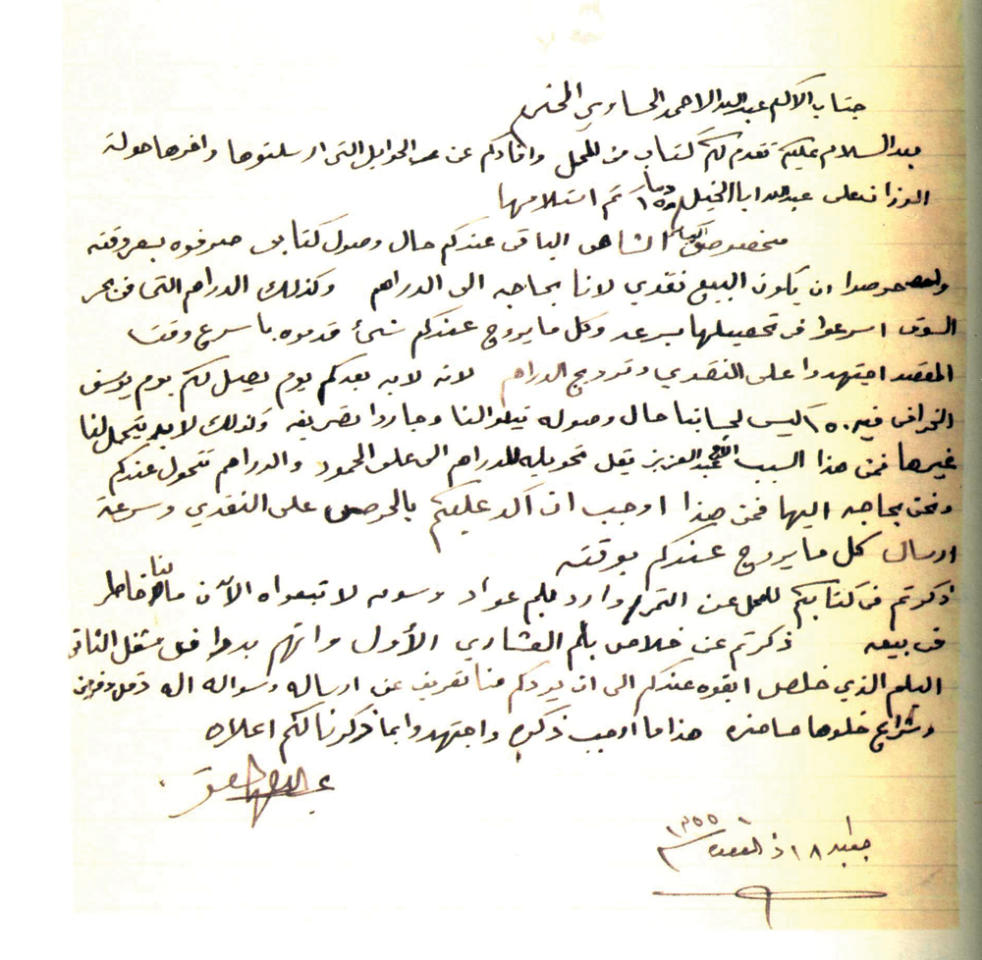 جناب الاكرم عبدالله الاحمد الحساوي المحترم
بعد السلام عليكم تقدم لكم كتاب من المحل وافادكم عن الحوايل التي ارسلتوها وافرها حولة
الوزان على عبدالله ابا الخيل تم استلامها
بخصوص الشاهي الباقي عندكم حال وصول كتابي صرفوه بسعر وقته
واحرصوا ان يكون البيع نقدي لانا بحاجه الى الدراهم وكذلك الدراهم التي في بحر
السوق اسرعوا في تحصيلها بسرعه وكل ما يروج عندكم شئ قدموه باسرع وقت
المقصد اجتهدوا على النقدي وترويج الدراهم لانه لابد بعدكم يوم يصل لكم بوم يوسف
الخرافي فيه ١٥٠ كيس لحسابنا حال وصوله وجاردا تصريفه وكذلك لابد يتحمل لنا
غيرها فمن هذا السبب الأخ عبدالعزيز يقل تحويله للدراهم الى علي الحمود والدراهم تتحول عندكم
ونحن بحاجه اليها فمن هذا اوجب ان آكد عليكم بالحرص على النقدي وسرعة
ارسال كل ما يروج عندكم بوقته
ذكرتم في كتابكم للمحل عن التمر وارد بلم عواد وسومه لا تبعوه الآن مالنا خاطر
في بيعه ذكرتم عن خلاص بلم العشاري الأول وانهم بدوا في شغل الثاني
البلم الذي خلص ابقوه عندكم الى ان يردكم منا تعريف عن ارساله وسواله اله دقل وفرمن
وشراع خلوها حاضره هذا ما اوجب ذكره واجتهدوا بما ذكرنا لكم اعلاه
١٨ ذ القعدة ١٣٥٥